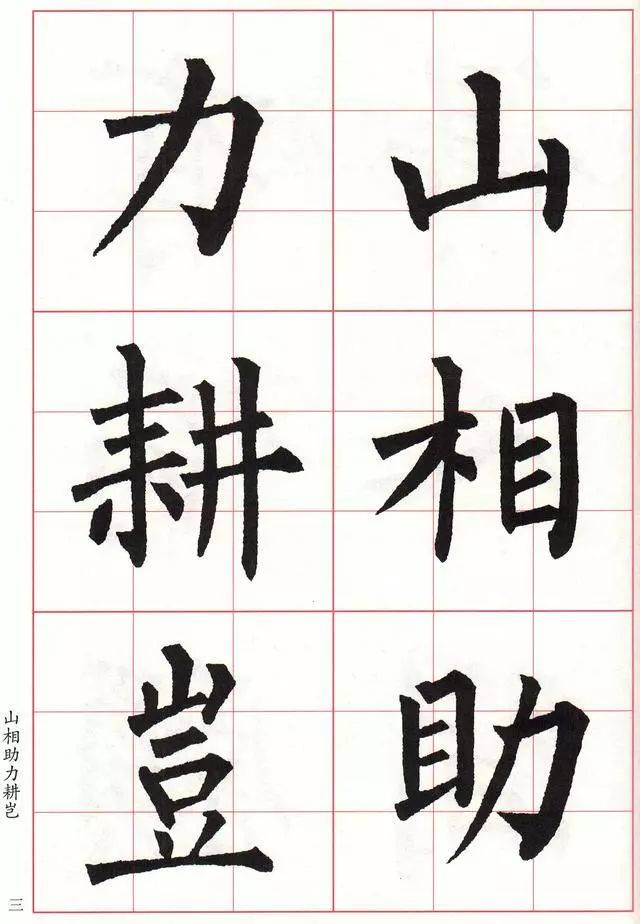 山相助
力耕豈
山相助力耕岂
三